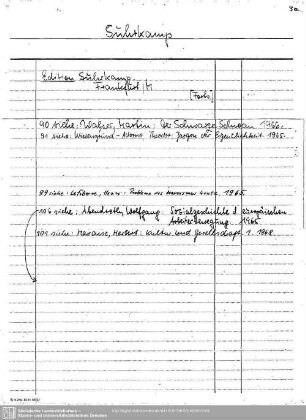 3a
Suhrkamp
Edition Suhrkamp
Frankfurt/M
90 siehe: Walser, Martin: Der Schwarze Schwan. 1966.
91 siehe: Wiesengrund-Adorno, Theodor: Jargon der Eigentlichkeit. 1965.
99 siehe: Lefebvre, Henri: Probleme des Marxismus heute. 1965.
106 siehe: Abendroth, Wolfgang: Sozialgeschichte d. europäischen
Arbeiterbewegung. 1965
101 siehe: Marcuse, Herbert: Kultur und Gesellschaft 1. 1968.